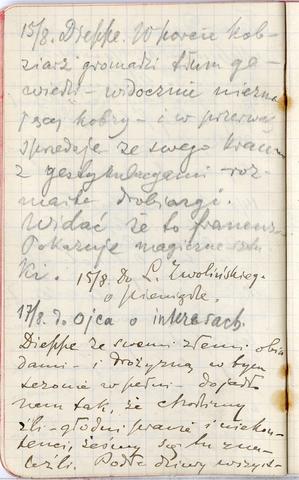 15/8. Dieppe. W porcie kob-
ziarz gromadzi tłum ga-
wiedzi - widocznie niezna
jącej kobzy - i w przerwach
sprzedaje ze swego
z gestykulacjami roz-
maite drobiazgi.
Widać że to francuz.
Pokazuje magiczne sztu
ki. 15/8. Do L. Zwolińskiego
o pieniądze.
17/8. do Ojca o interesach.
Dieppe ze swemi złemi obia
dami - i drożyzną w tym
sezonie w pełni - dojadło
nam tak, że chodzimy
źli - głodni prawie i niekon-
tenci, żeśmy się tu zna-
leźli. Podłe dziwy wszyst-